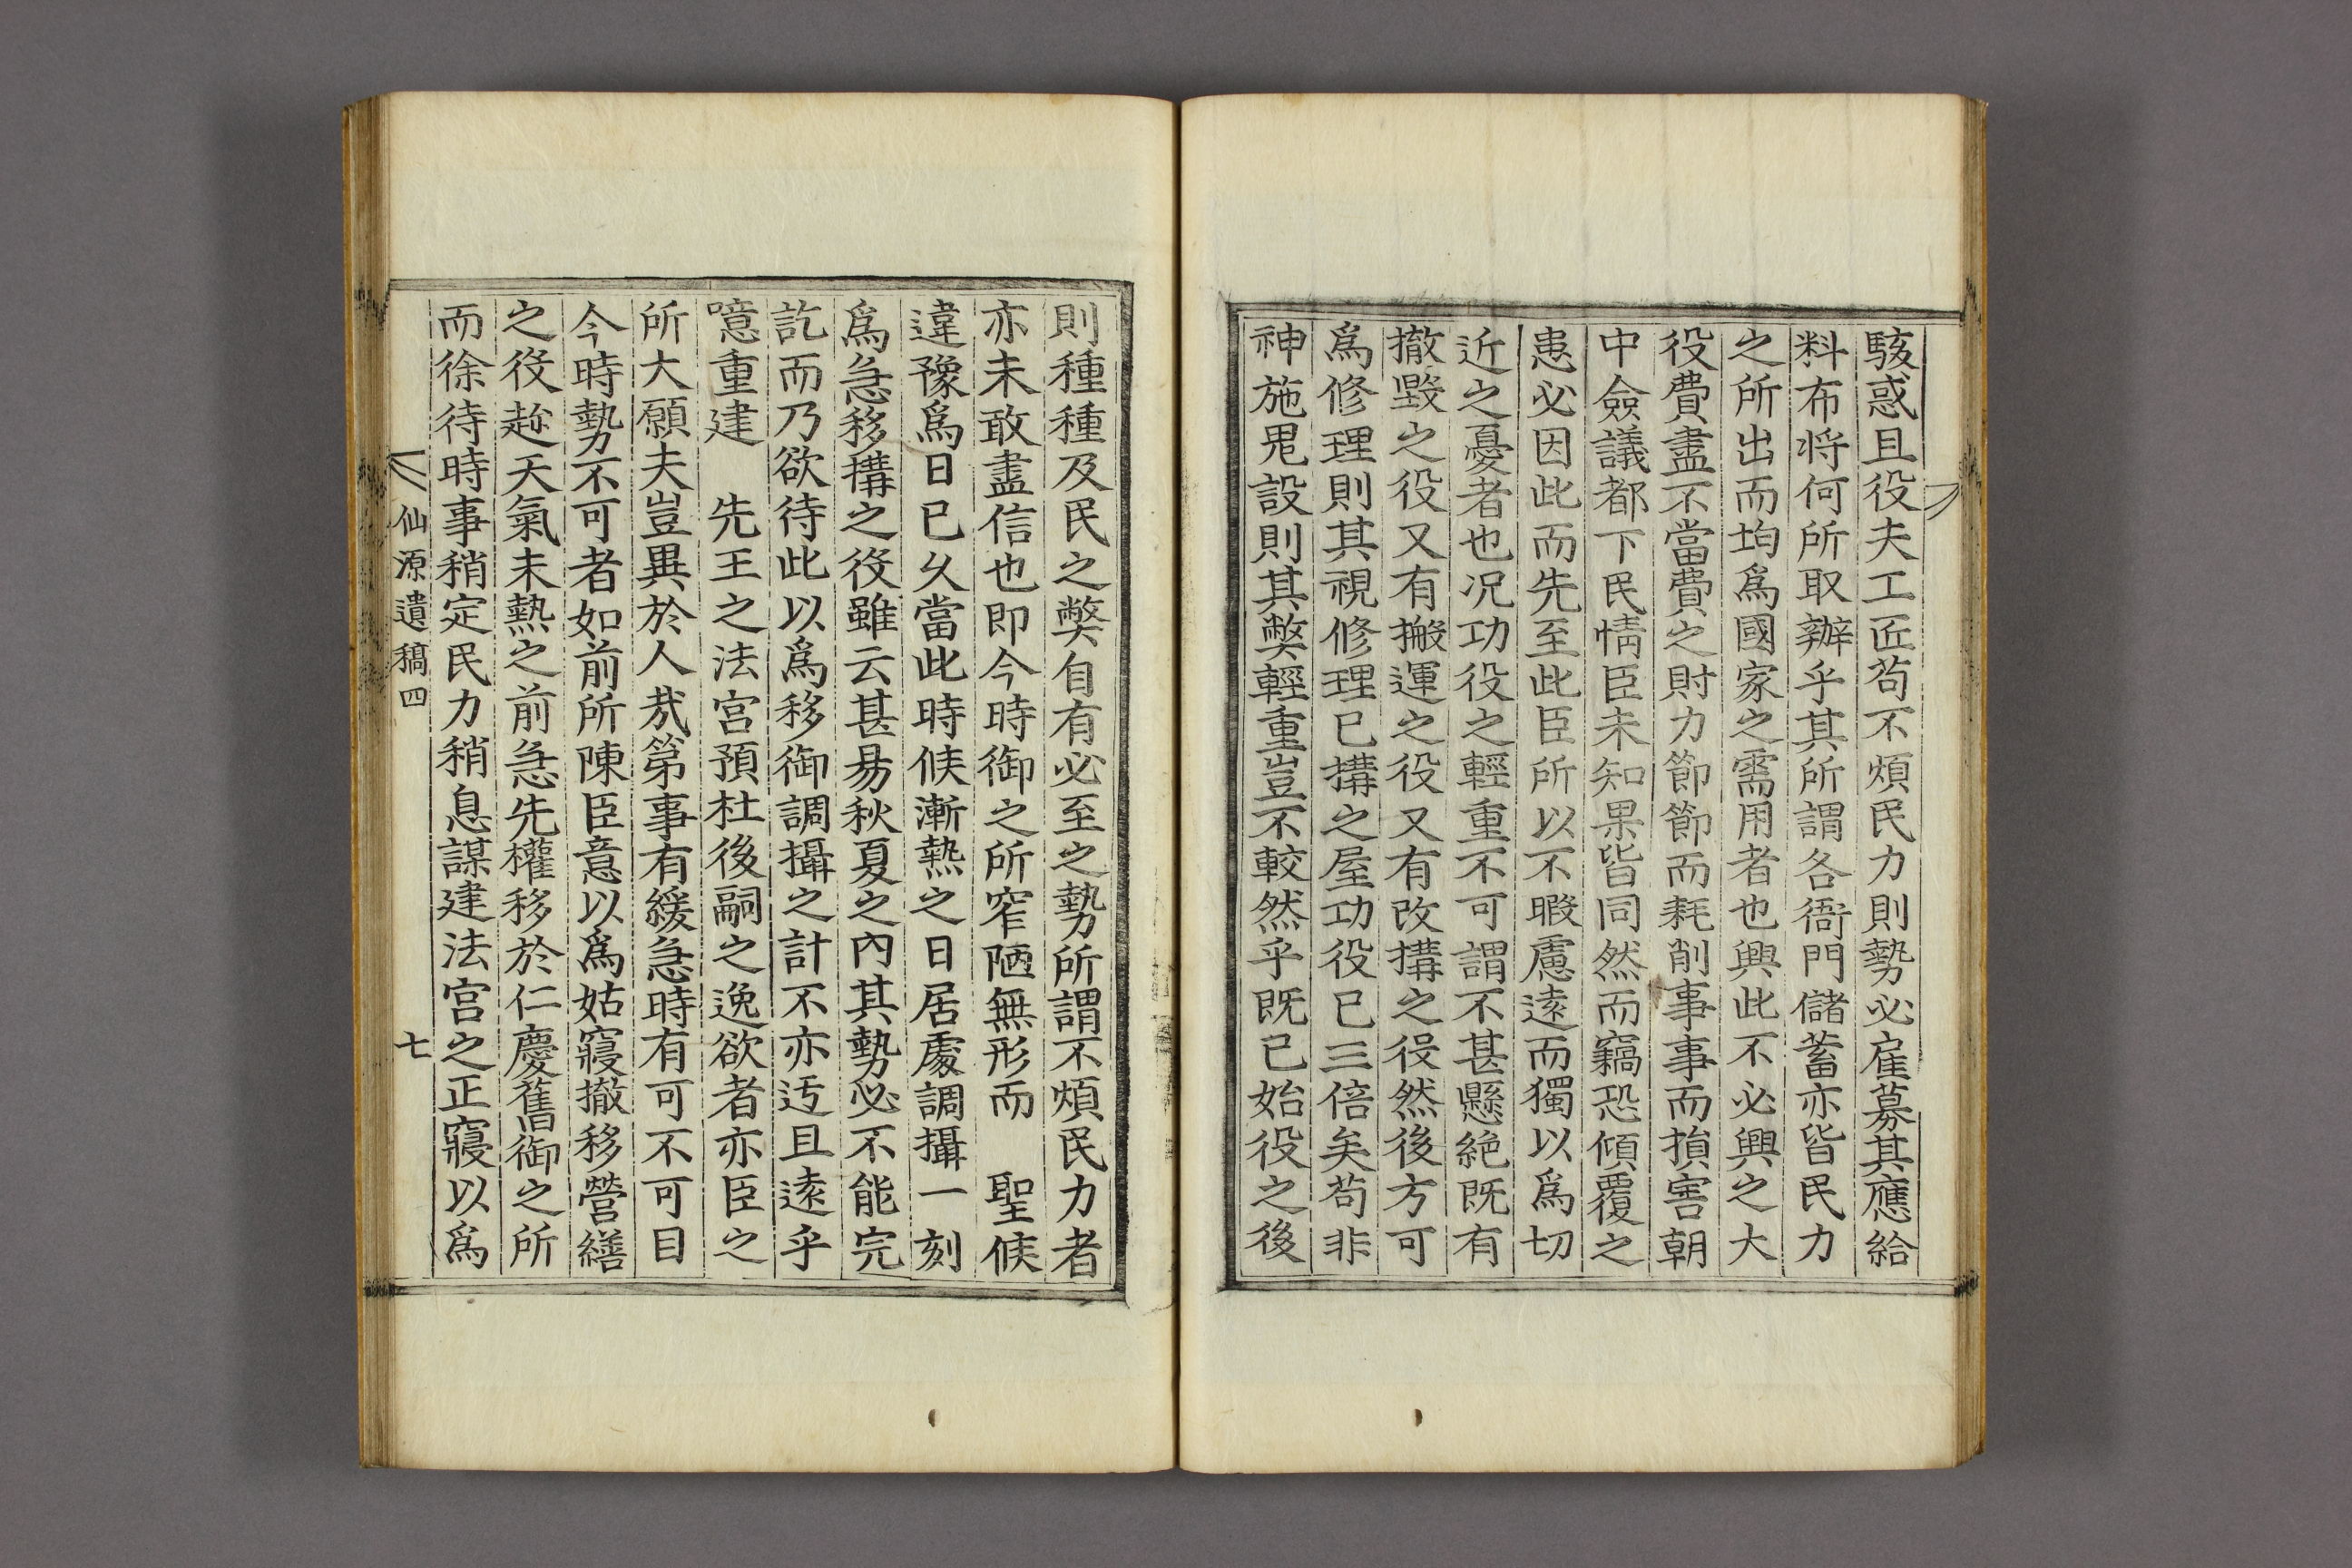 駭惑且役夫工匠茍不煩民力則勢必雇募其應給
料布将何所取辦乎其所謂各衙門儲蓄亦皆民力
之所出而均爲國家之需用者也興此不必興之大
役費盡不當費之財力節節而耗削事事而損害朝
中僉議都下民情臣未知果皆同然而竊恐傾覆之
患必因此而先至此臣所以不暇慮遠而獨以爲切
近之憂者也况功役之輕重不可謂不甚懸絶既有
撤毀之役又有搬運之役又有改搆之役然後方可
爲修理則其視修理已搆之屋功役已三倍矣苟非
神施鬼設則其弊輕重豈不較然乎既已始役之後
則種種及民之弊自有必至之勢所謂不煩民力者
亦未敢盡信也即今時御之所窄陋無形而　聖候
違豫爲日已久當此時候漸熱之日居處調攝一刻
爲急移搆之役雖云甚易秋夏之內其勢必不能完
訖而乃欲待此以爲移御調攝之計不亦迃且遠乎
噫重建　先王之法宮預杜後嗣之逸欲者亦臣之
所大願夫豈異於人㢤第事有緩急時有可不可目
今時勢不可者如前所陳臣意以爲姑寢撤移營繕
之役趁天氣未熱之前急先權移於仁慶舊御之所
而徐待時事稍定民力稍息謀建法宮之正寢以爲
仙源遺稿四　七